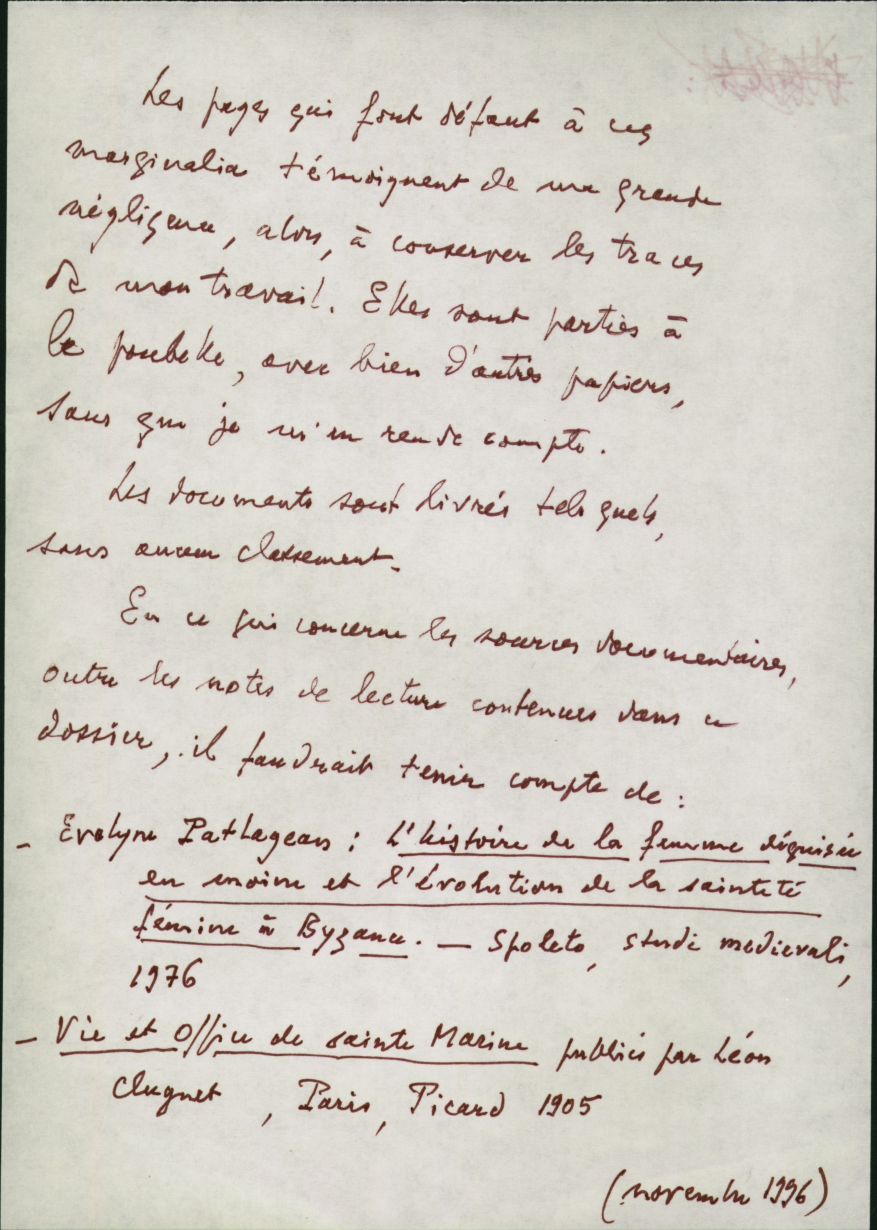 Les pages qui font défaut à ces
marginalia témoignent de ma grande
négligence, alors, à conserver les traces
de mon travail. Elles sont parties à
la poubelle, avec bien d'autres papiers,
sans que je m'en rende compte.
Les documents sont livrés tels quels,
sans aucun classement.
En ce qui concerne les sources documentaires,
outre les notes de lecture contenues dans ce
dossier, il faudrait tenir compte de :
- Evelyne Patlagean : L'histoire de la femme déguisée
en moine et l'évolution de la sainteté
fémine à Byzance. - Spoleto, studi medievali,
1976
- Vie et Office de sainte Marine publiés par Léon
Clugnet, Paris, Picard 1905
(novembre 1996)